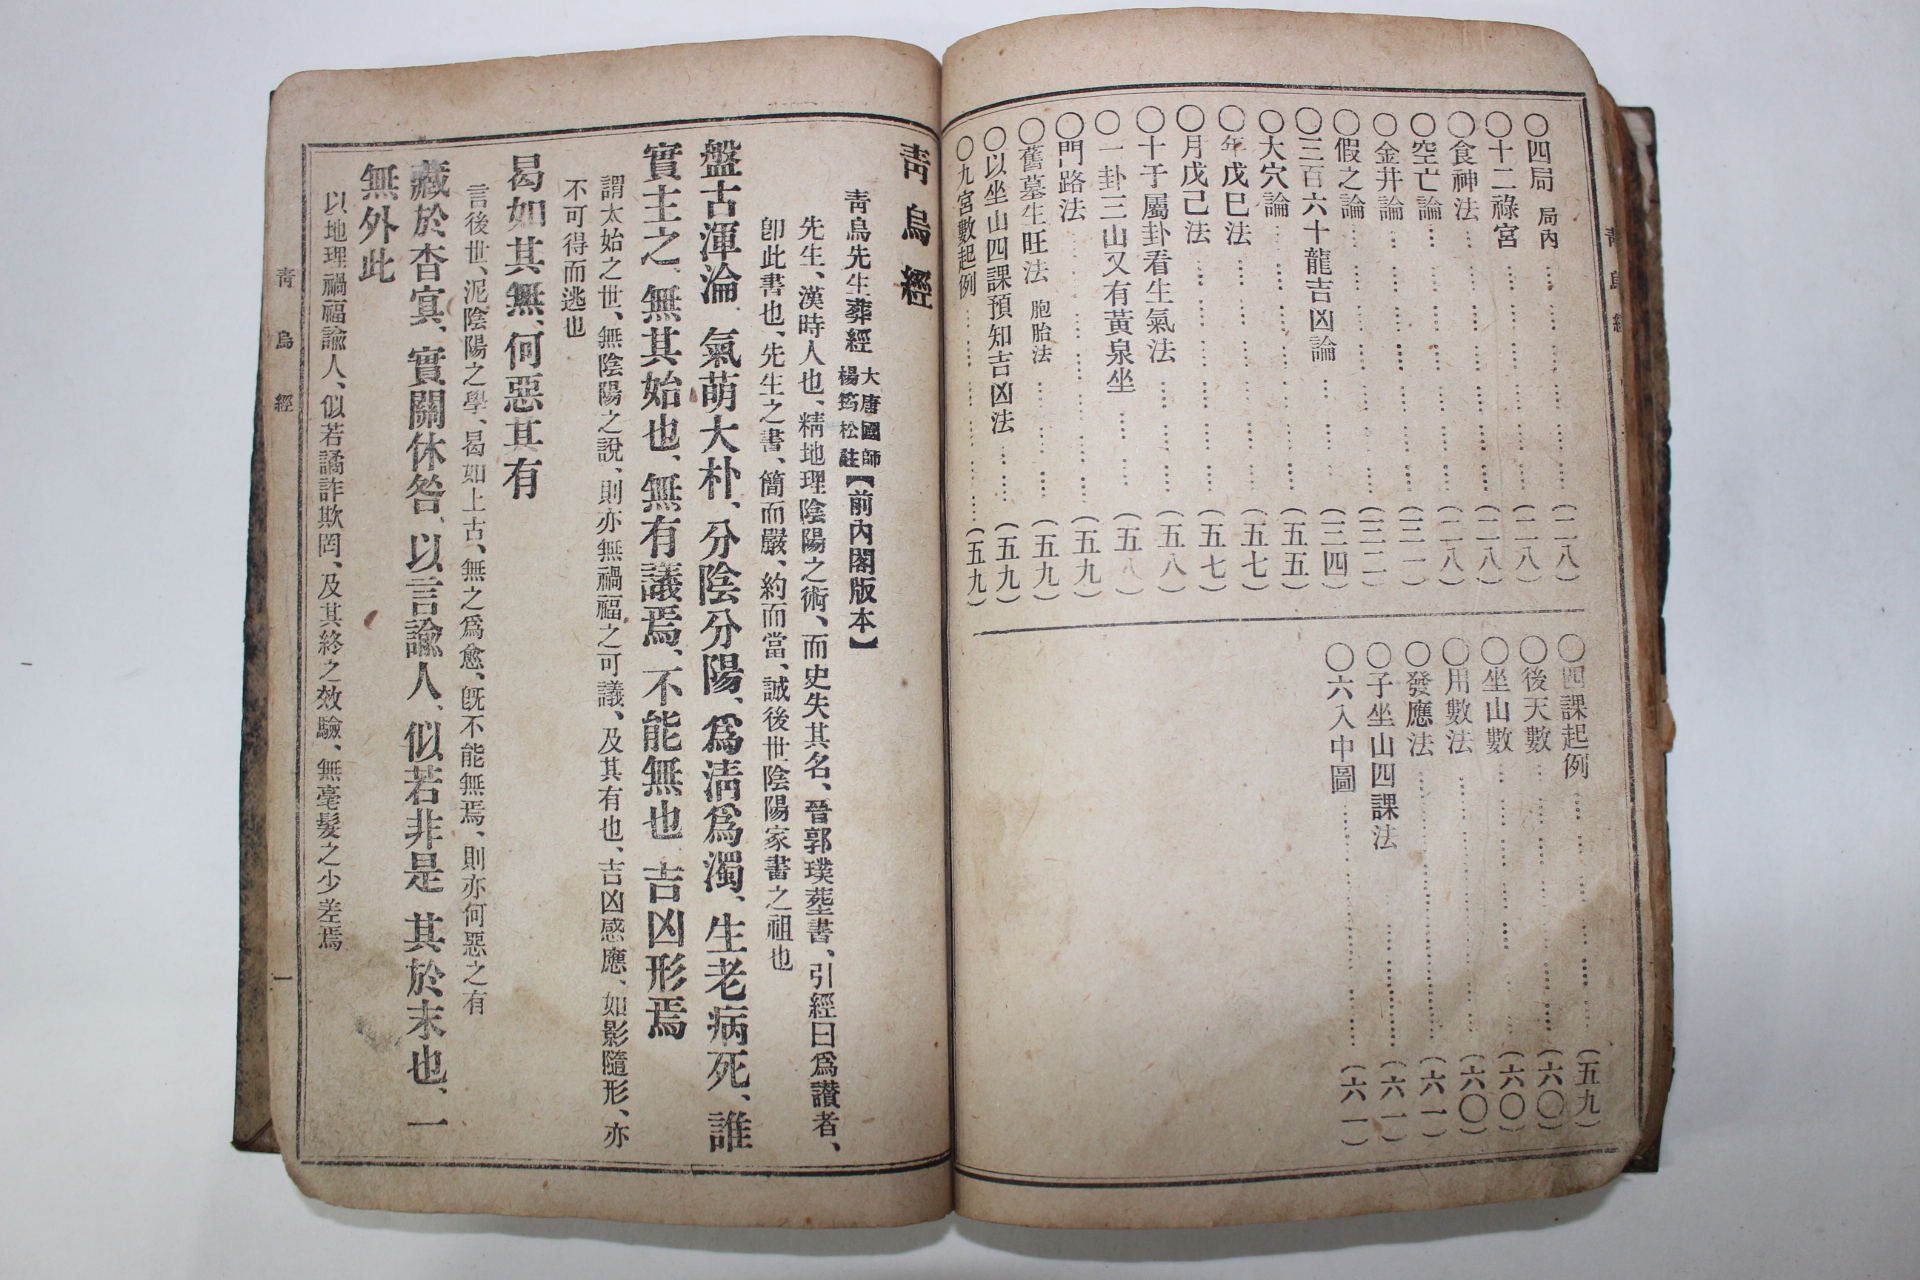 ○四局 局內 (二八)
○十二祿宮 (二八)
○食神法 (二八)
○空亡論 (二八)
○金井論 (三一)
○假之論 (三二)
○三百六十龍吉凶論 (三四)
○大穴論 (五五)
○年戊巳法 (五七)
○月戊己法 (五七)
○十子屬卦看生氣法 (五八)
○一卦三山又有黃泉坐 (五八)
○門路法 (五九)
○舊墓生旺法 胞胎法 (五九)
○以坐山四課預知吉凶法 (五九)
○九宮數起例 (五九)
○四課起例 (五九)
○後天數 (六〇)
○坐山數 (六〇)
○用數法 (六〇)
○發應法 (六一)
○子坐山四課法 (六一)
○六入中圖 (六一)
靑烏經
靑烏經
靑烏先生葬經 大唐國師楊筠松註【前內閣版本】
先生、漢時人也、精地理陰陽之術、而史失其名、晉郭璞葬書、引經曰爲讃者、
卽此書也、先生之書、簡而嚴、約而當、誠後世陰陽家書之祖也
盤古渾淪、氣萌大朴、分陰分陽、爲淸爲濁、生老病死、誰
實主之、無其始也、無有議焉、不能無也、吉凶形焉
謂太始之世、無陰陽之說、則亦無禍福之可議、及其有也、吉凶感應、如影隨形、亦
不可得而逃也
曷如其無、何惡其有
言後世、泥陰陽之學、曷如上古、無之爲愈、旣不能無焉、則亦何惡之有
藏於杳冥、實關休咎、以言諭人、似若非是、其於末也、一
無外此
以地理禍福諭人、似若譎詐欺罔、及其終之效驗、無毫髮之少差焉
靑烏經
一